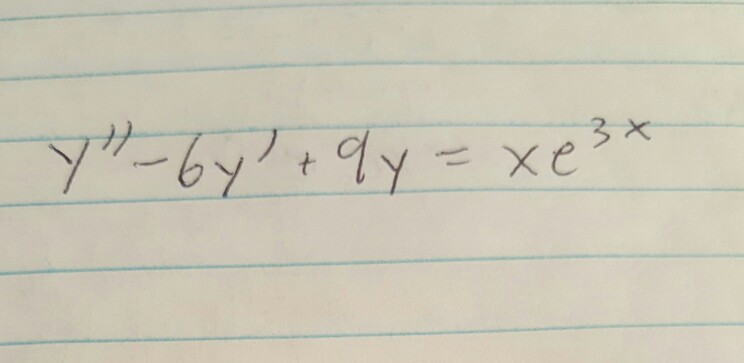 y'' - 6y' + 9y = xe^{3x}